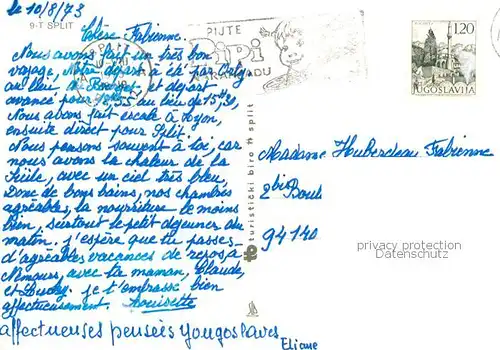 le 10/8/73
9-T SPLIT
PIJTE
PiPi
NARANČADU
1.20
JUGOSLAVIJA
Chère Fabienne.
Nous avons fait un très bon
voyage, Notre départ a été par Orly
au lieu du Bourget et départ
avancé pour au lieu de 15H30,
Nous avons fait escale à Lyon,
ensuite direct pour Split.
Nous pensons souvent à toi, car
nous avons la chaleur de la
Sicile, avec un ciel très bleu,
Donc de bons bains, nos chambres
agréables, la nourriture le moins
bien, surtout le petit déjeuner du
matin. j'espère que tu passes
d'agréables vacances de repos à
Nemours, avec la maman, Claude,
et je t'embrasse bien
affectueusement. Louisette
affectueuses pensées Yougoslaves
Eliane
turistički biro split
Madame Huberdeau Fabienne
2 bis Boul
94140
privacy protection
Datenschutz